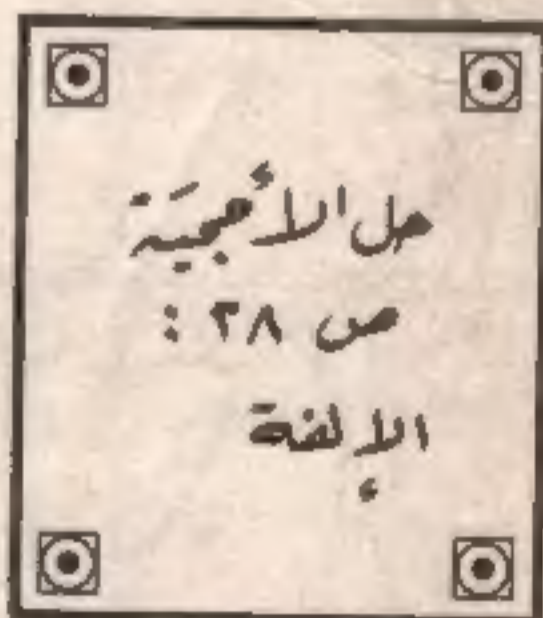 حل الأحجية
ص ٢٨ :
الإلفة